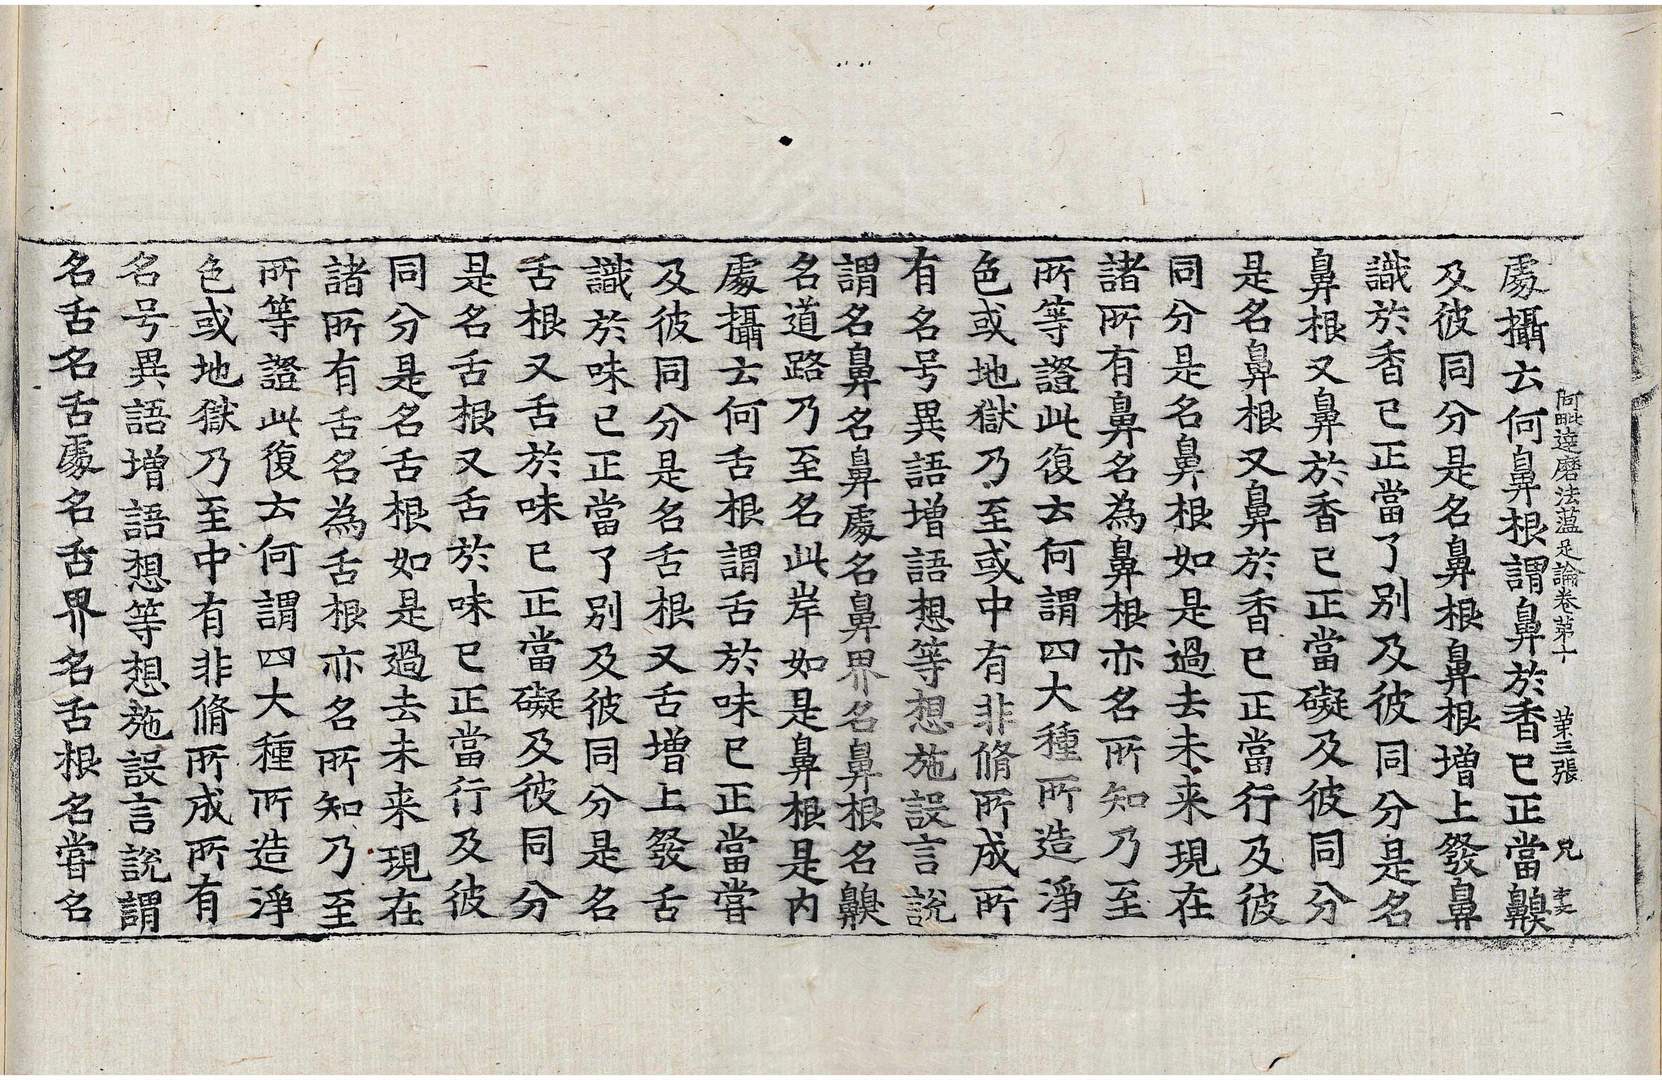 阿毗達磨法蘊足論卷第十　第三張　兄
處攝云何鼻根謂鼻於香已正當齅
及彼同分是名鼻根鼻根增上發鼻
識於香已正當了別及彼同分是名
鼻根又鼻於香已正當礙及彼同分
是名鼻根又鼻於香已正當行及彼
同分是名鼻根如是過去未来現在
諸所有鼻名為鼻根亦名所知乃至
所等證此復云何謂四大種所造淨
色或地獄乃至或中有非脩所成所
有名号異語增語想等想施設言說
謂名鼻名鼻處名鼻界名鼻根名齅
名道路乃至名此岸如是鼻根是内
處攝云何舌根謂舌於味已正當甞
及彼同分是名舌根又舌增上發舌
識於味已正當了別及彼同分是名
舌根又舌於味已正當礙及彼同分
是名舌根又舌於味已正當行及彼
同分是名舌根如是過去未来現在
諸所有舌名為舌根亦名所知乃至
所等證此復云何謂四大種所造淨
色或地獄乃至中有非脩所成所有
名号異語增語想等想施設言說謂
名舌名舌處名舌界名舌根名甞名